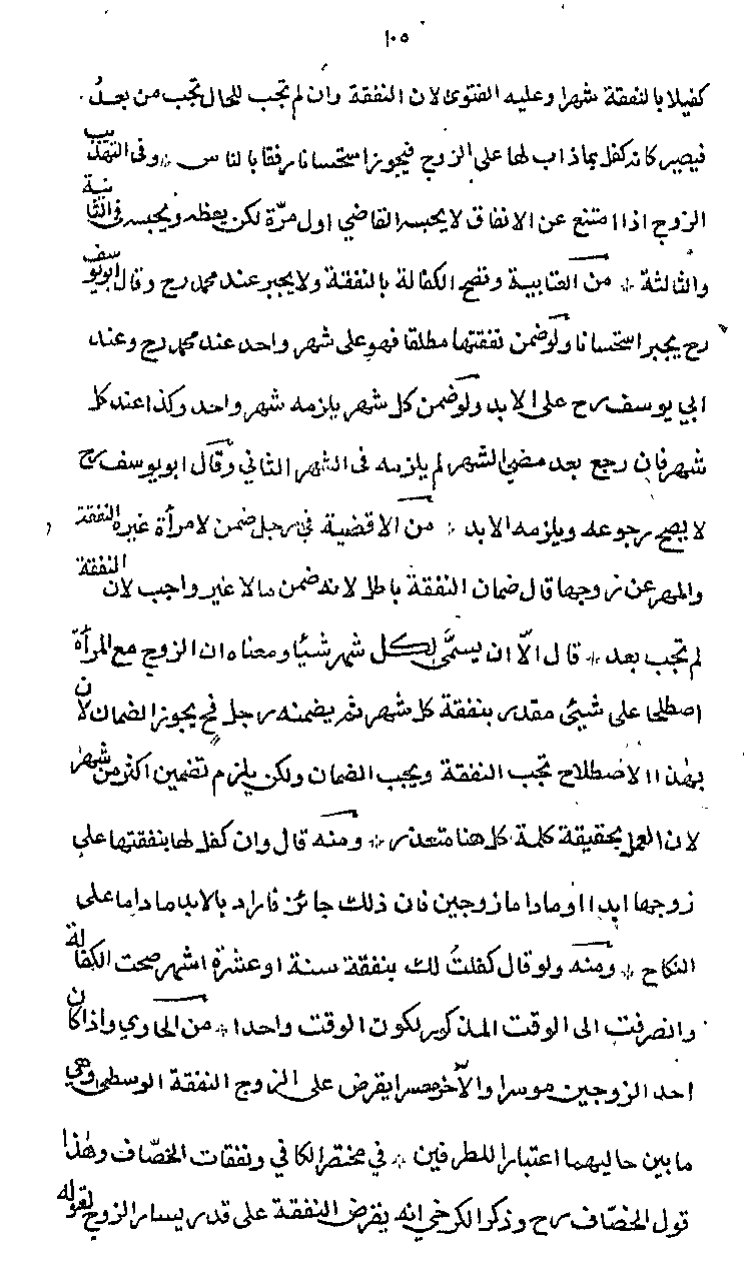 ١٠٥
كفيلا بالنفقة شهرا وعليه الفتوى لان النفقة وان لم تجب للحال تجب من بعدُ .
فيصير كانه كفل بما ذاب لها على الزوج فيجوز استحسانا رفقا بالناس * وفى التهذيب
الزوج اذا امتنع عن الانفاق لا يحبسه القاضي اول مرّة لكن يعظه ويحبسه فى الثانية
والثالثة * من العتابية وتصح الكفالة بالنفقة ولا يجبر عند محمد رح وقال ابويوسف
رح يجبر استحسانا ولو ضمن نفقتها مطلقا فهو على شهر واحد عند محمد رح وعند
ابي يوسف رح على الابد ولو ضمن كل شهر يلزمه شهر واحد وكذا عند كل
شهر فان رجع بعد مضي الشهر لم يلزمه فى الشهر الثاني وقال ابويوسف رح
لا يصح رجوعه ويلزمه الابد * من الاقضية في رجل ضمن لامرأة غيره النفقة
والمهر عن زوجها قال ضمان النفقة باطل لانه ضمن مالا غير واجب لان النفقة
لم تجب بعد * قال الّا ان يسمّى لكل شهر شيًا ومعناه ان الزوج مع المرأة
اصطلحا على شيئ مقدر بنفقة كل شهر ثم يضمنه رجل فح يجوز الضمان لان
بهذا الاصطلاح تجب النفقة ويجب الضمان ولكن يلزم تضمين اكثر من شهر
لان العمل بحقيقة كلمة كل هنا متعذر * ومنه قال وان كفل لها بنفقتها على
زوجها ابدا او ماداما زوجين فان ذلك جائز فاراد بالابد ماداما على
النكاح * ومنه ولو قال كفلتُ لك بنفقة سنة او عشرة اشهر صحت الكفالة
وانصرفت الى الوقت المذكور لكون الوقت واحدا * من الحاوي واذا كان
احد الزوجين موسرا والآخر معسرا يفرض على الزوج النفقة الوسطى وهي
ما بين حاليهما اعتبارا للطرفين * في مختصر الكافي ونفقات الخصّاف وهٰذا
قول الخصّاف رح وذكر الكرخي انه يفرض النفقة على قدر يسار الزوج لقوله